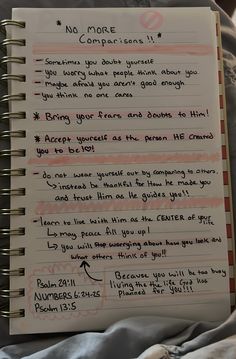 * NO MORE
Comparisons !! *
- Sometimes you doubt yourself
- you worry what people think about you
- maybe afraid you aren't good enough
- you think no one cares
* Bring your fears and doubts to Him!
* Accept yourself as the person HE created
you to be!
- do not wear yourself out by comparing to others.
↳ instead be thankful for How he made you
and trust Him as He guides you!!
- learn to live with Him as the CENTER of your life
↳ may peace fill you up!
↳ you will stop worrying about how you look and
what others think of you!!
Because you will be too busy
living the the life God has
planned for YOU!!!
Psalm 29:11
NUMBERS 6:24-25
Psalm 13:5